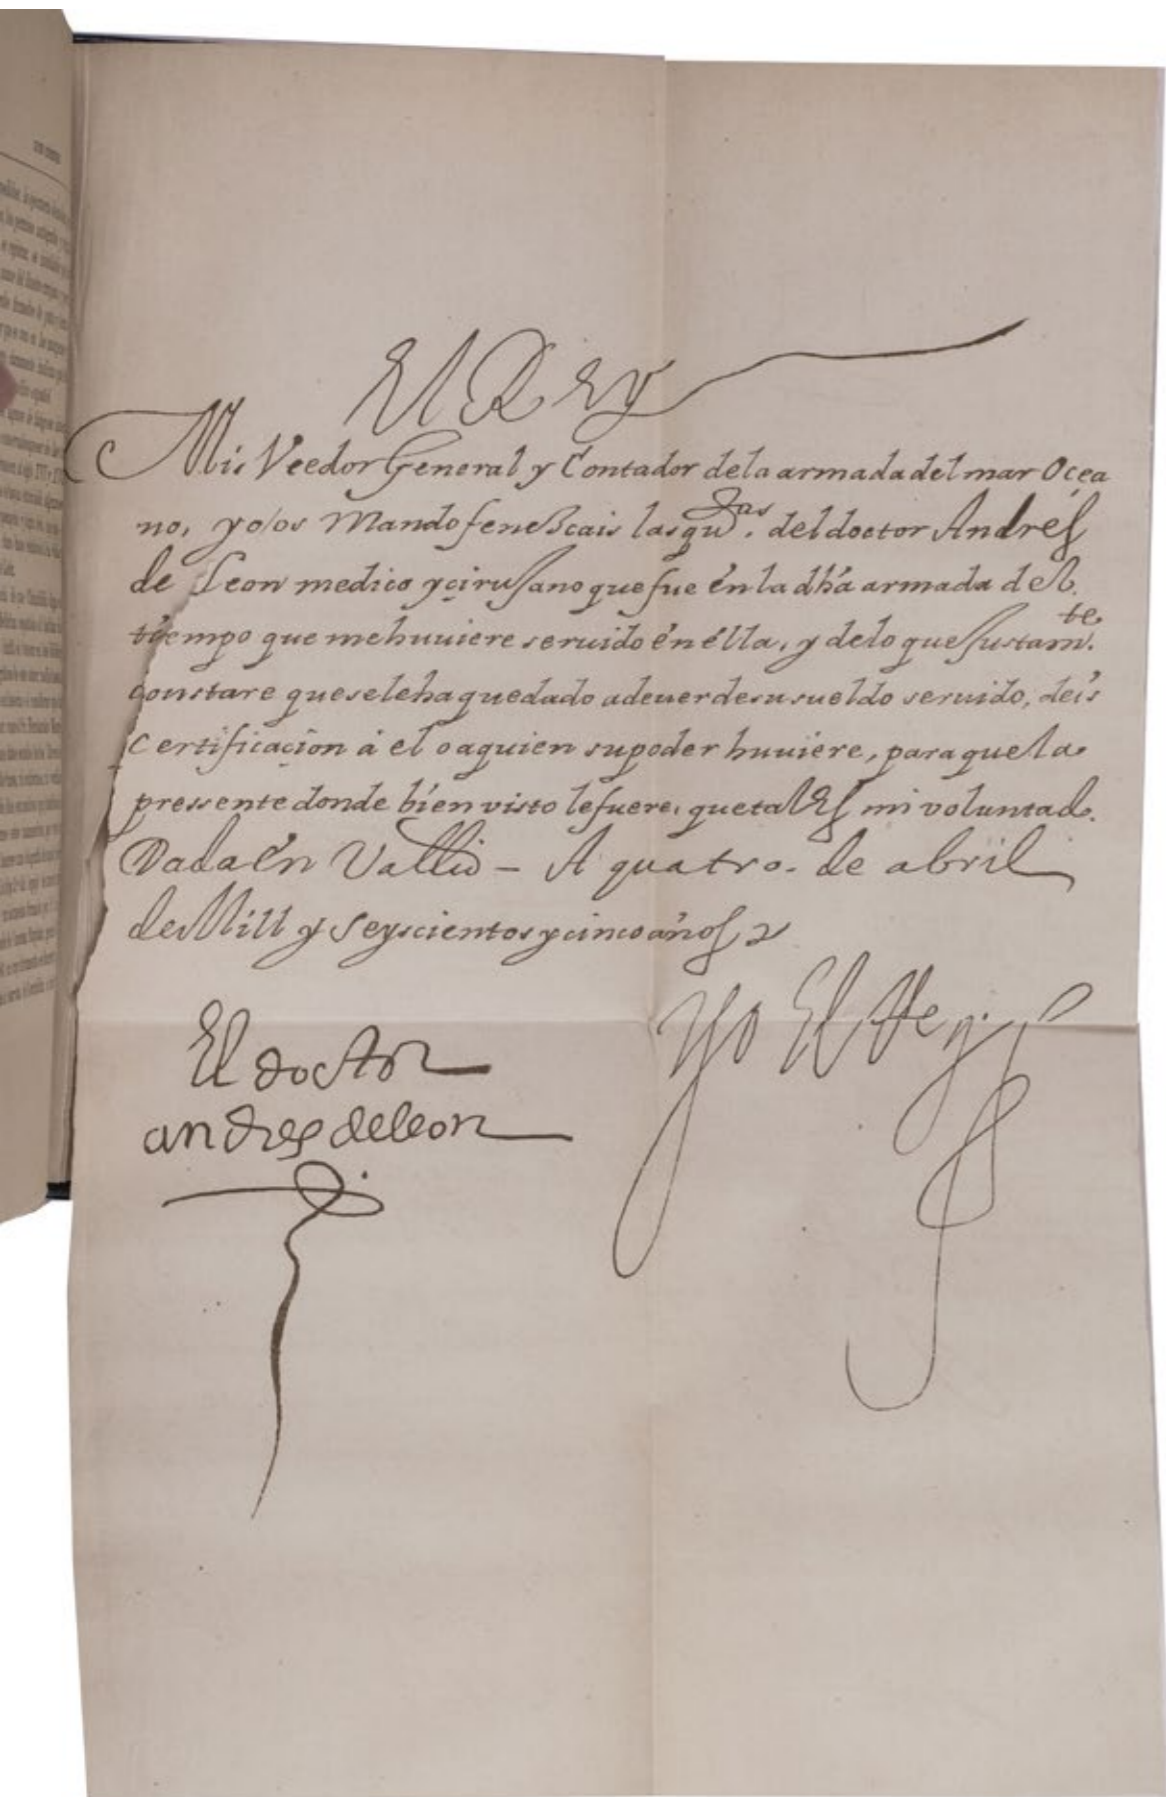 El Rey
Mis Veedor General y Contador dela armada del mar Ocea
no, yo os Mando fenescais las qu.das del doctor Andres
de Leon medico y cirujano que fue én la dha armada del
tiempo que me huuiere seruido én élla, y delo que Justam.te
constare que se le ha quedado a deuer de su sueldo seruido, deis
Certificacion á el o a quien su poder huuiere, para que la
pressente donde bien visto le fuere, que tal Es mi voluntad.
Dada én Vallid – A quatro. de abril
de Mill y Seyscientos y cinco años
Yo El Rey
El doctor
andres de leon